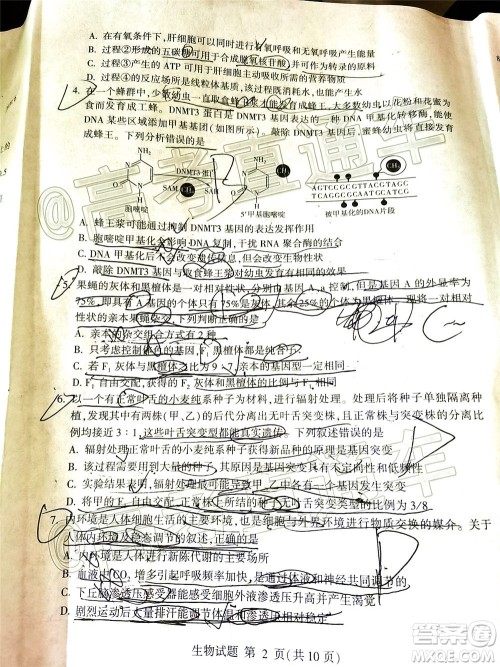 A. 在有氧条件下，肝细胞可同时进行有氧呼吸和无氧呼吸产生能量
B. 过程②形成的五碳糖可用于合成脱氧核苷酸
C. 过程③产生的 ATP 可用于肝细胞主动吸收所需的营养物质
D. 过程④的反应场所是线粒体基质，该过程既消耗水，也能产生水
4. 在一个蜂群中，少数幼虫一直取食蜂王浆而发育成蜂王，大多数幼虫以花粉和花蜜为
食而发育成工蜂。DNMT3 蛋白是 DNMT3 基因表达的一种 DNA 甲基化转移酶，能使
DNA 某些区域添加甲基基团（如图所示）。敲除 DNMT3 基因后，蜜蜂幼虫将发育成
蜂王。下列分析错误的是
NH₂
DNMT3 蛋白
SAM CH₃
SAM
胞嘧啶
NH₂
CH₃
5'甲基胞嘧啶
CH₃
AGTCCGCGTTACGTAGC
TCAGGCGCAATGCATCG
被甲基化的DNA片段
A. 蜂王浆可能通过抑制 DNMT3 基因的表达而发挥作用
B. 胞嘧啶甲基化会影响 DNA 复制，但不影响与 RNA 聚合酶的结合
C. DNA 甲基化后不改变遗传信息，但会改变生物性状
D. 敲除 DNMT3 基因与取食蜂王浆对幼虫发育有相似的效果
5. 果蝇的灰体和黑檀体是一对相对性状，分别由基因 A、a 控制，但是基因 A 的外显率为
75%，即具有 A 基因的个体只有 75%是灰体，其余 25%的个体为黑檀体。现将一对相对
性状的亲本果蝇交配，下列判断正确的是
A. 亲本的杂交组合方式有 2 种
B. 只考虑控制体色的基因，F₁ 黑檀体都是纯合子
C. 若 F₁ 灰体与黑檀体之比为 9 : ，则亲本的基因型一定相同
D. F₁ 自由交配，获得的 F₂ 灰体和黑檀体的比例与 F₁ 相同
6. 以一个有正常叶舌的小麦纯系种子为材料，进行辐射处理。处理后将种子单独隔离种
植，发现其中有两株（甲、乙）的后代分离出无叶舌突变株，且正常株与突变株的分离比
例均接近 3∶1，这些叶舌突变型都能真实遗传。下列叙述错误的是
A. 辐射处理正常叶舌的小麦纯系种子获得新品种的原理是基因突变
B. 该实验中，甲、乙两株小麦可能是相同基因发生了显性突变
C. 实验结果表明，辐射处理最可能导致了甲、乙中各有一个基因发生突变
D. 将甲的 F₁ 自由交配，所得 F₂ 中无叶舌突变株的比例为 3/8
7. 内环境是人体细胞生活的主要环境，也是细胞与外界环境进行物质交换的媒介。关于
人体内环境及稳态调节的叙述，正确的是
A. 内环境是人体进行新陈代谢的主要场所
B. 血液中CO₂ 增多引起呼吸频率加快，是通过神经和体液共同调节的
C. 下丘脑渗透压感受器能感受细胞外液渗透压升高并产生渴觉
D. 剧烈运动后大量排汗能调节体温和渗透压相对稳定
生物试题 第 2 页（共 10 页）